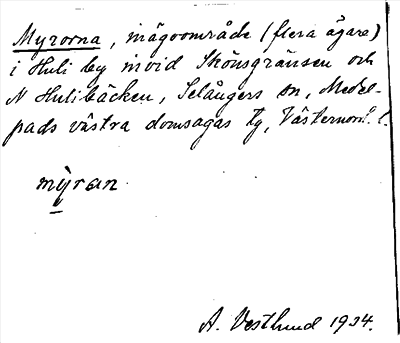 Myrorna, inägoområde (flera ägare)
i Huli by invid Skönsgränsen och
N Hulibäcken, Selångers sn, Medel-
pads västra domsagas tg, Västernorrl. l.
myran
A. Vestlund 1934.